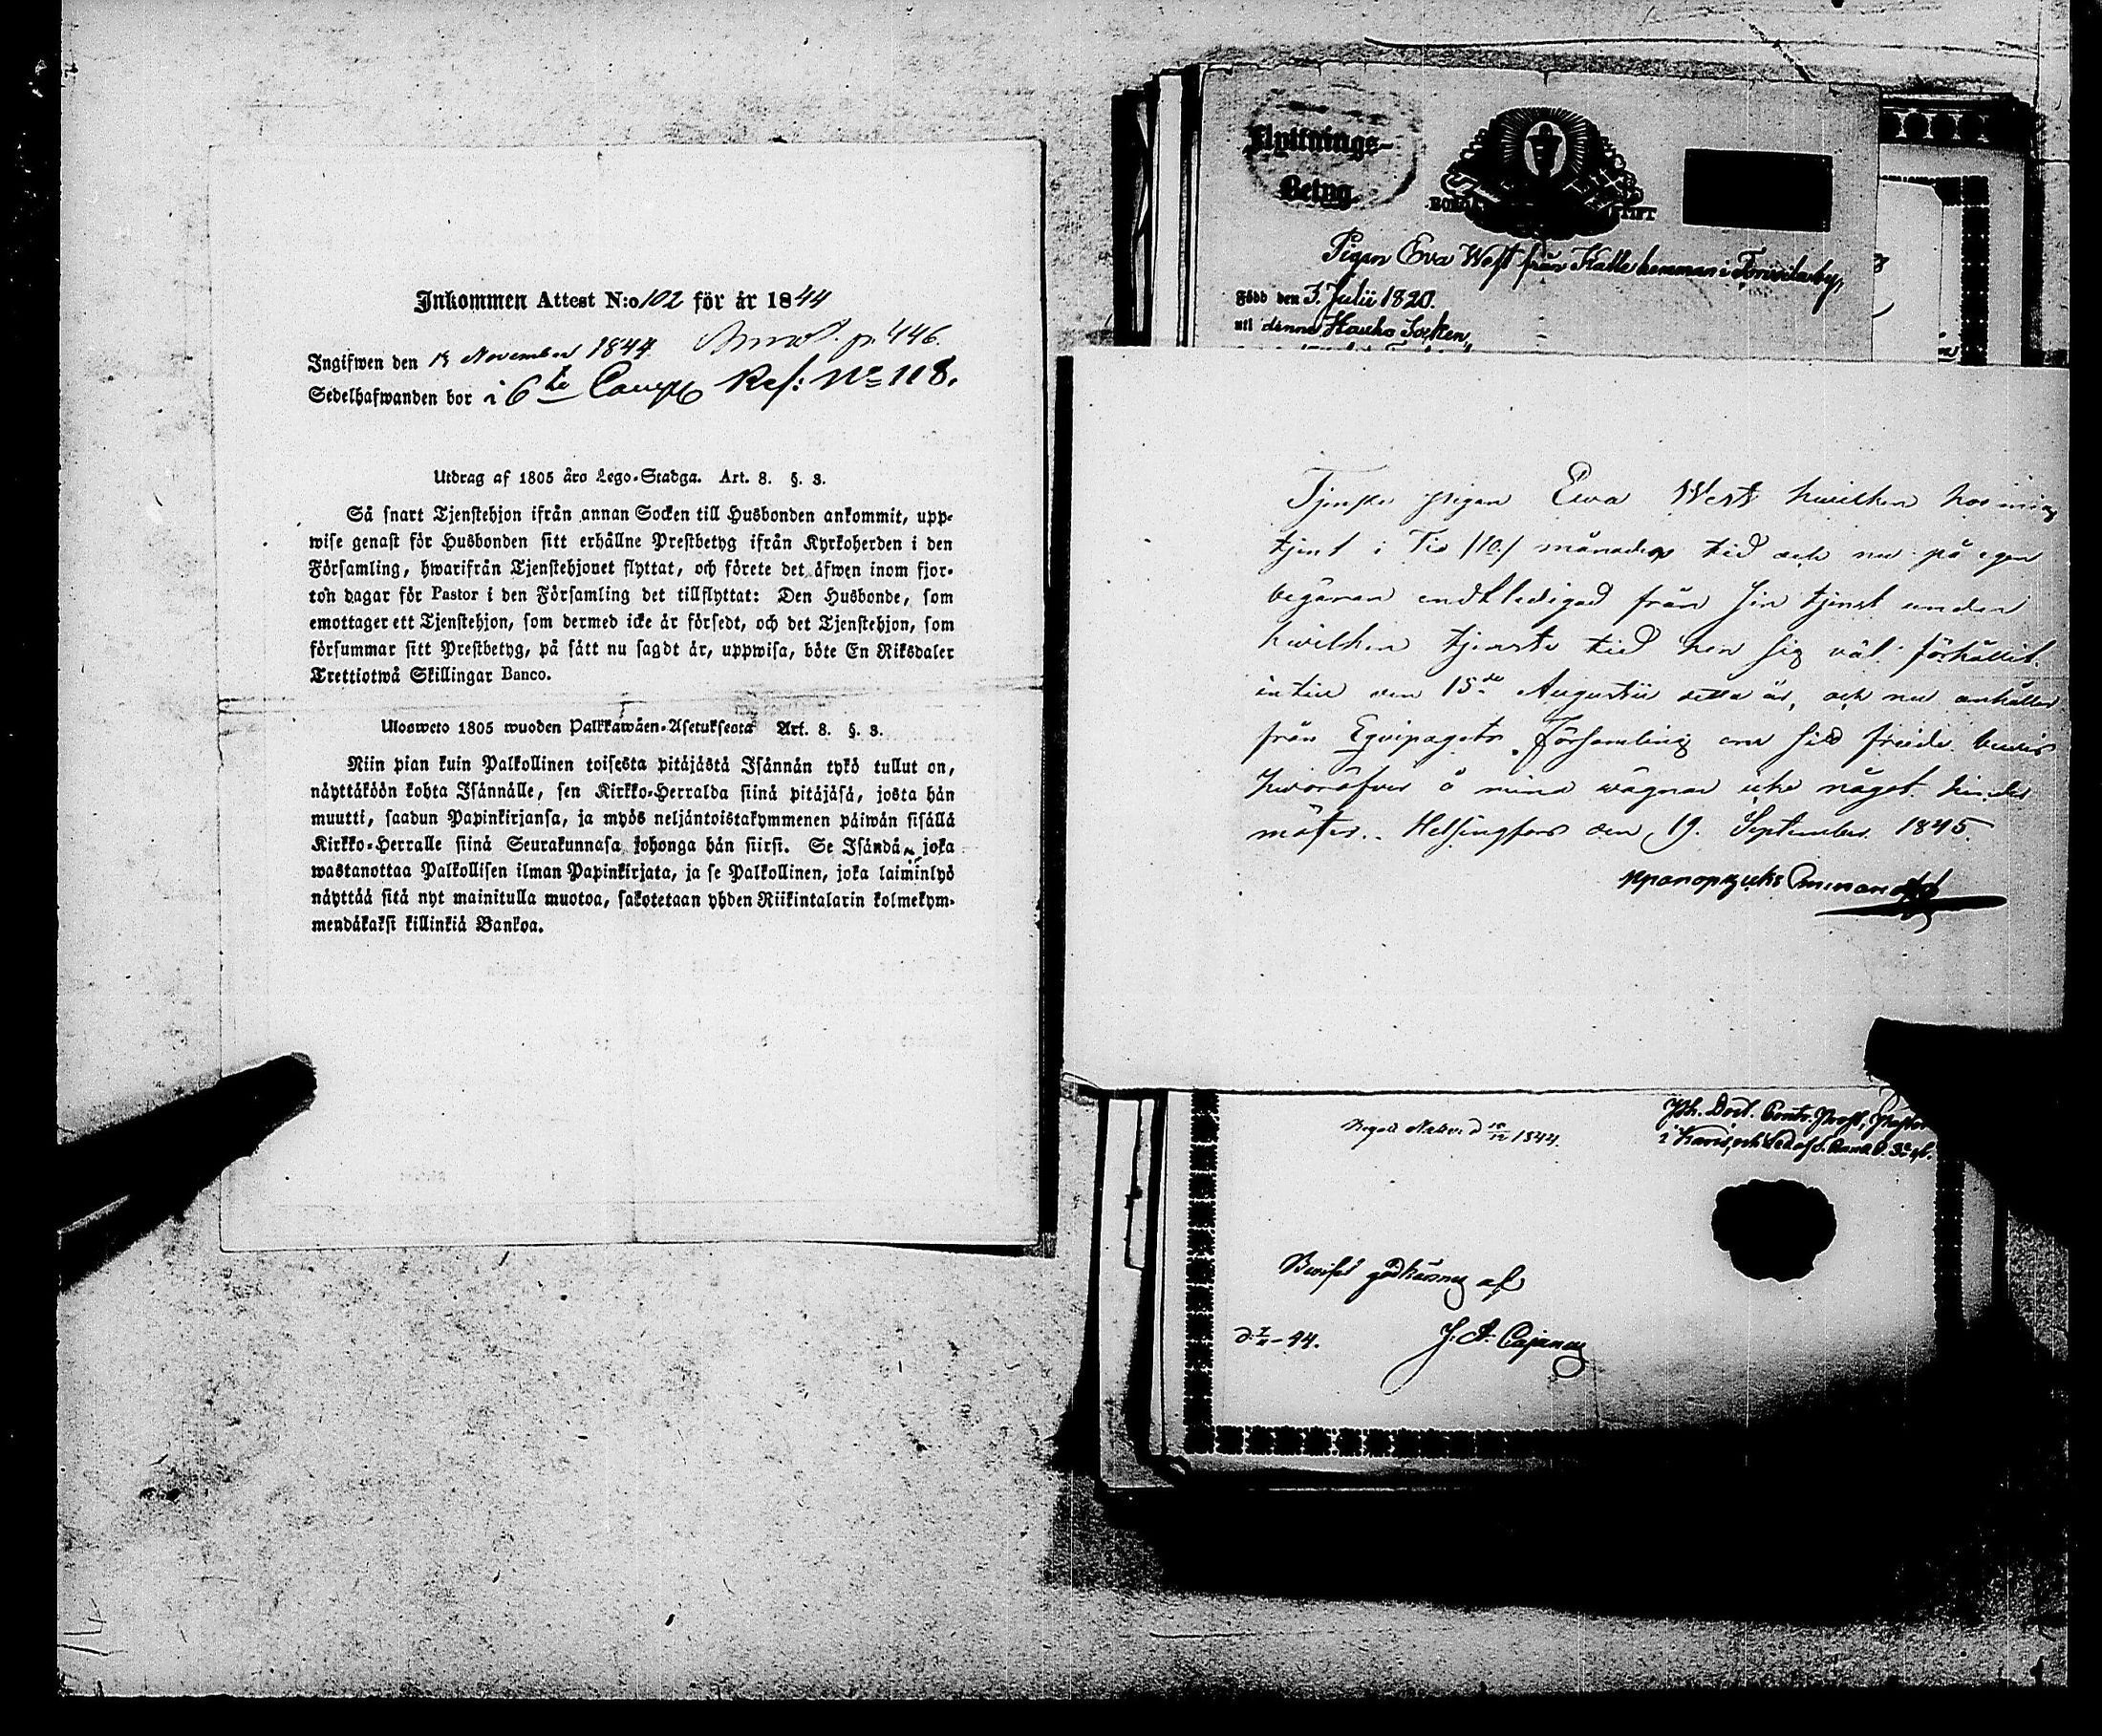 Inkommen Attest N:o 102 för år 1844
Ingifwen den 13 November 1844 p. 446.
Sedelhafwanden bor i 6te Comp No 118.
Utdrag af 1805 års Lego-Stadga. Art. 8. §. 3.
Så snart Tjenstehjon ifrån annan Socken till Husbonden ankommit, upp-
wise genast för Husbonden sitt erhållne Prestbetyg ifrån Kyrkoherden i den
Församling, hwarifrån Tjenstehjonet flyttat, och förete det äfwen inom fjor-
ton dagar för Pastor i den Församling det tillflyttat: Den Husbonde, som
emottager ett Tjenstehjon, som dermed icke är försedt, och det Tjenstehjon, som
försummar sitt Prestbetyg, på sätt nu sagdt är, uppwisa, böte En Riksdaler
Trettiotwå Skillingar Banco.
Ulosweto 1805 wuoden Palkkawäen-Asetuksesta Art. 8. §. 3.
Niin pian kuin Palkollinen toisesta pitäjästä Isännän tykö tullut on,
näyttäköön kohta Isännälle, sen Kirkko-Herralda siinä pitäjäsä, josta hän
muutti, saadun Papinkirjansa, ja myös neljäntoistakymmenen päiwän sisällä
Kirkko-Herralle siinä Seurakunnasa johonga hän siirsi. Se Isändä, joka
wastanottaa Palkollisen ilman Papinkirjata, ja se Palkollinen, joka laiminlyö
näyttää sitä nyt mainitulla muotoa, sakotetaan yhden Riikintalarin kolmekym-
mendäkaksi killinkiä Bankoa.
Flyttnings-
Betyg.
BORGÅ STIFT
Pigan Eva West från Kalle hemman i
Född den 3. Julii 1820.
uti denna Hauho Socken,
Tjenste pigan Ewa West hwilken hos mig
tjent i Tio /10/ månaders tid och nu på egen
begäran endtledigad från sin tjenst under
hwilken tjenste tid hon sig väl förhållit
intill den 15de Augustii detta år, och nu anhåller
från Equipagets Församling om sitt frejde bewis
hwaröfver å mina wägnar icke något hinder
möter. Helsingfors den 19. September 1845.
прапорщикъ
1844.
Joh. Dort. Contr. Prost, Pastor
i
Beviset godkännes af
44. J. A. Cajanus